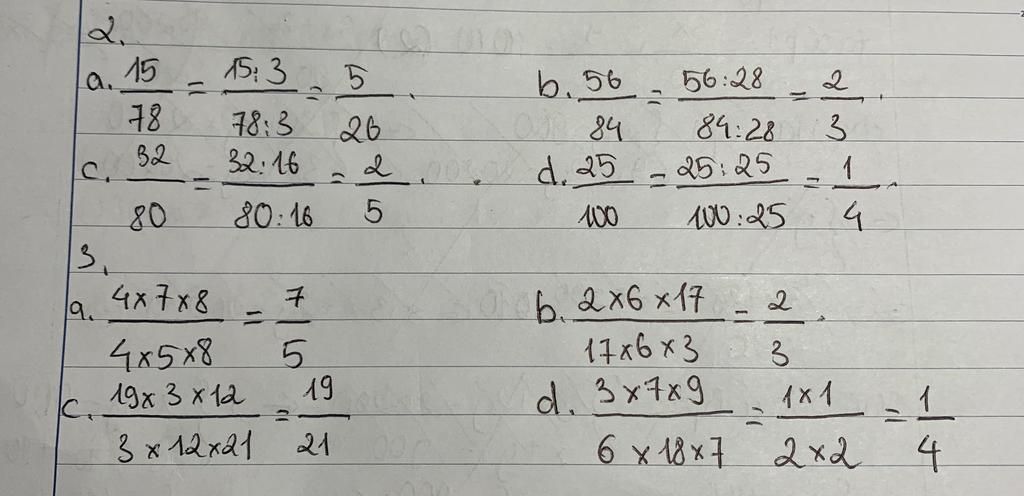 2.
a. 15/78 = 15:3/78:3 = 5/26. b. 56/84 = 56:28/84:28 = 2/3.
c. 32/80 = 32:16/80:16 = 2/5. d. 25/100 = 25:25/100:25 = 1/4.
3.
a. 4x7x8/4x5x8 = 7/5 b. 2x6x17/17x6x3 = 2/3.
c. 19x3x12/3x12x21 = 19/21 d. 3x7x9/6x18x7 = 1x1/2x2 = 1/4